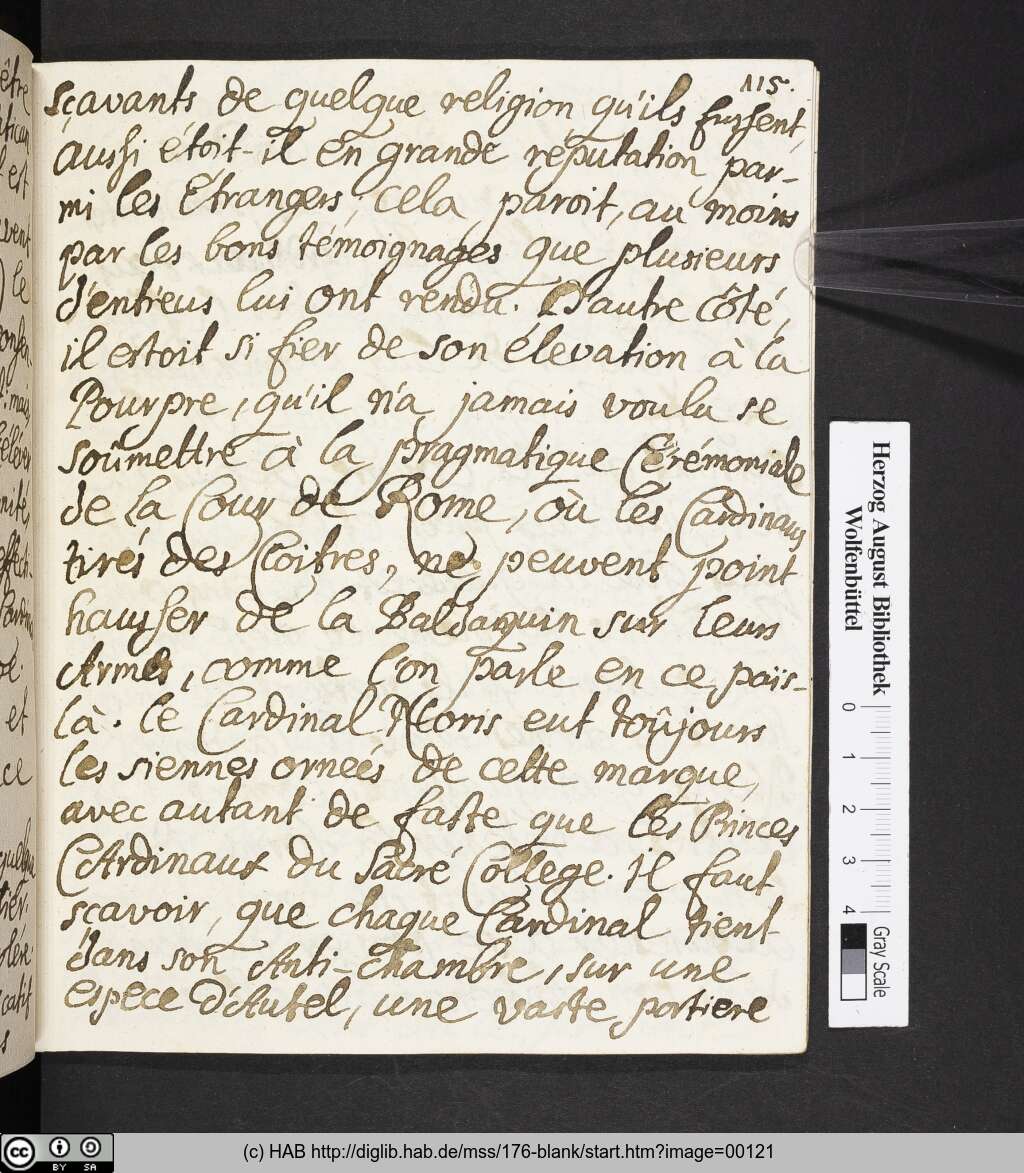 115.
sçavants de quelque religion qu'ils fussent,
aussi étoit-il en grande réputation par-
mi les Etrangers; cela paroit, au moins
par les bons témoignages que plusieurs
d'entr'eus lui ont rendu. D'autre côté,
il estoit si fier de son élevation à la
Pourpre, qu'il n'a jamais voulu se
soûmettre à la pragmatique Cerémoniale
de la Cour de Rome, où les Cardinaus
tirés des Cloitres, ne peuvent point
hausser de la Baldaquin sur leurs
Armes, comme l'on parle en ce païs-
là. le Cardinal Noris eut toûjours
les siennes ornées de cette marque,
avec autant de faste que les Princes
Cardinaux du Sacré College. il faut
sçavoir, que chaque Cardinal tient
dans son Anti-chambre, sur une
espece d'Autel, une vaste portiere
Herzog August Bibliothek
Wolfenbüttel
0 1 2 3 4
Gray Scale
(c) HAB http://diglib.hab.de/mss/176-blank/start.htm?image=00121
cc BY SA